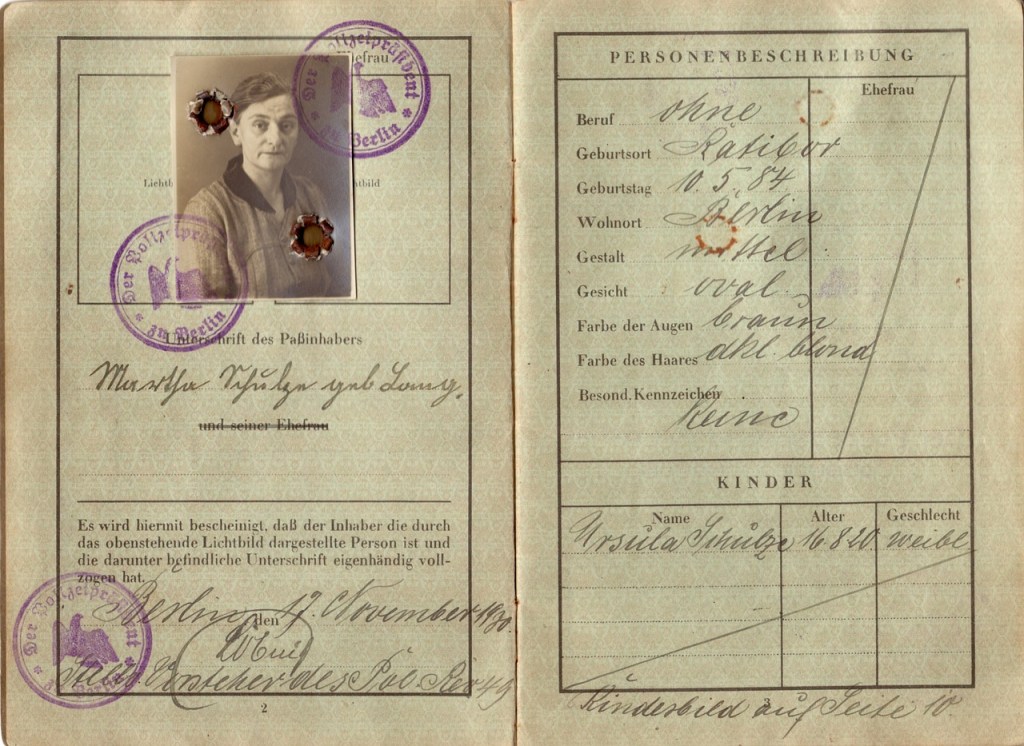 Ehefrau
Der Polizeipräsident
* zu Berlin *
Lichtb
htbild
Der Polizeipräsident
* zu Berlin *
Unterschrift des Paßinhabers
Martha Schulze geb Lang.
und seiner Ehefrau
Es wird hiermit bescheinigt, daß der Inhaber die durch
das obenstehende Lichtbild dargestellte Person ist und
die darunter befindliche Unterschrift eigenhändig voll-
zogen hat.
Der Polizeipräsident
* zu Berlin *
Berlin, den 17. November 1930.
Vorsteher des Pol. Rev 49
2
PERSONENBESCHREIBUNG
Ehefrau
Beruf ohne
Geburtsort Ratibor
Geburtstag 10. 5. 84
Wohnort Berlin
Gestalt mittel
Gesicht oval.
Farbe der Augen braun
Farbe des Haares dkl. blond
Besond. Kennzeichen
Keine
KINDER
Name Alter Geschlecht
Ursula Schulze 16 8 20. weibl
Kindesbild auf Seite 10.